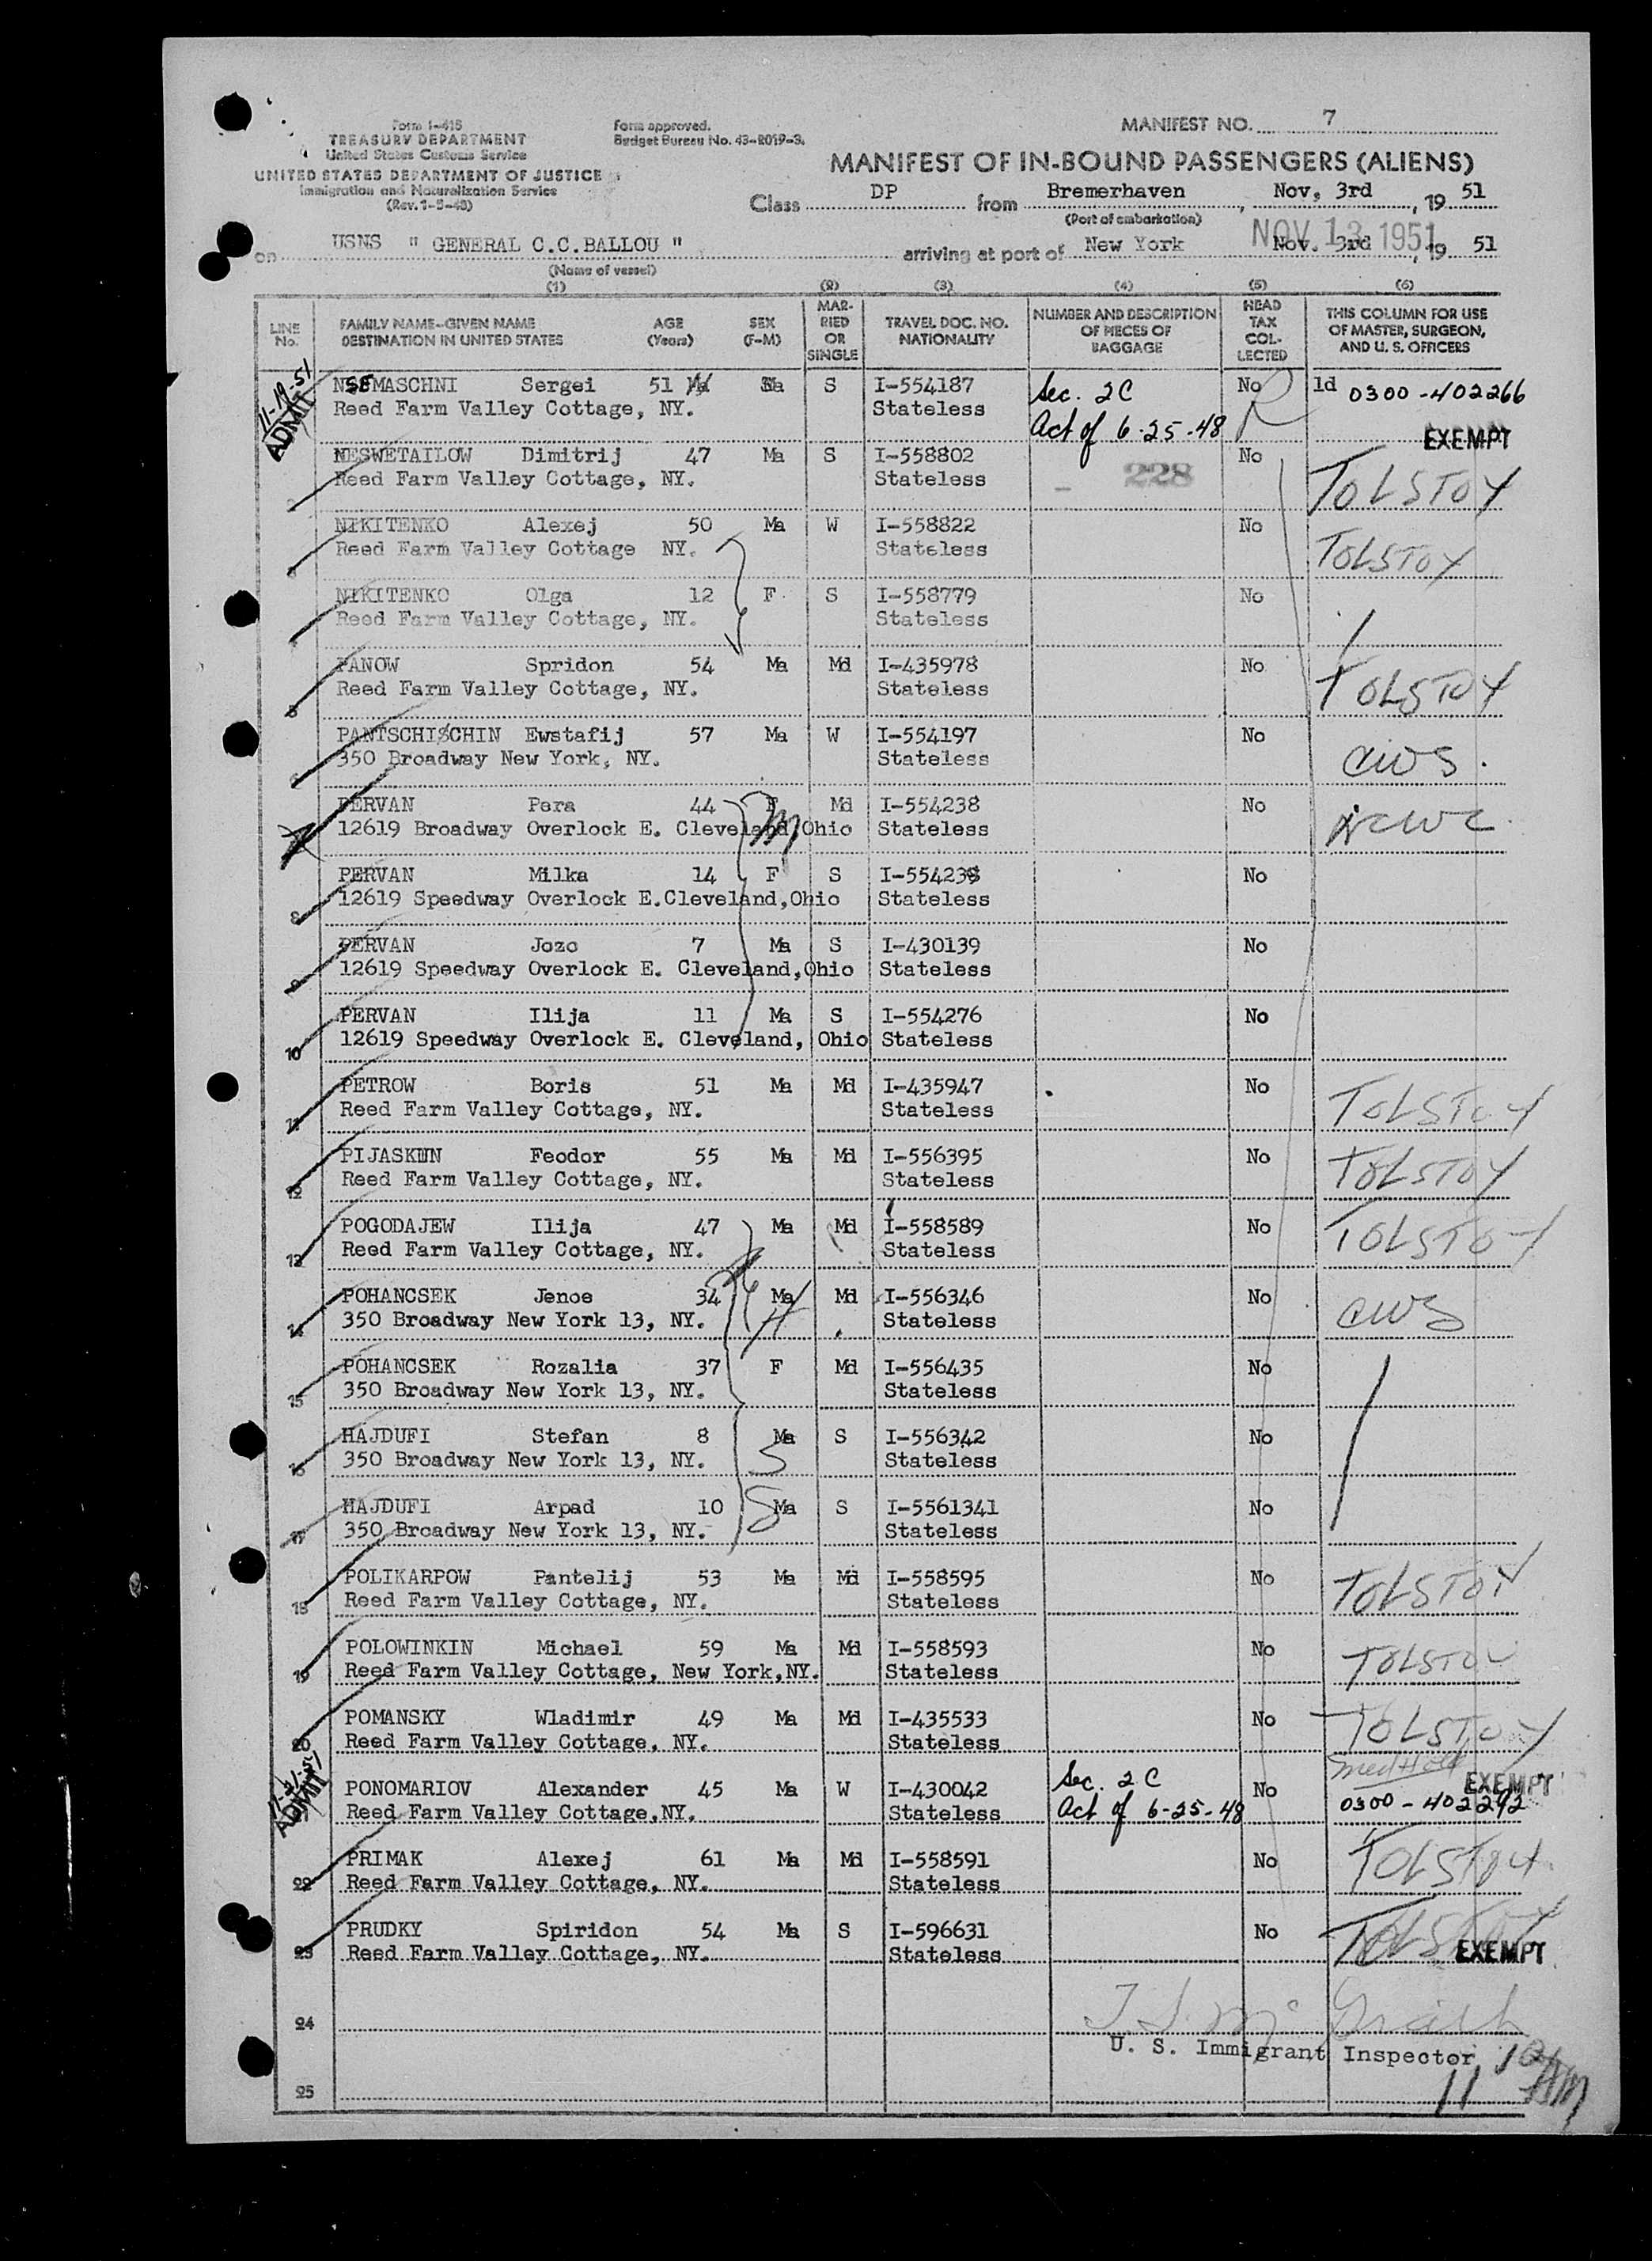 Form I-415
TREASURY DEPARTMENT
United States Customs Service
UNITED STATES DEPARTMENT OF JUSTICE
Immigration and Naturalization Service
(Rev. 1-5-48)
Form approved.
Budget Bureau No. 43-R019-3.
MANIFEST NO. 7
MANIFEST OF IN-BOUND PASSENGERS (ALIENS)
Class DP from Bremerhaven, Nov, 3rd, 19 51
(Port of embarkation)
on USNS " GENERAL C.C.BALLOU " arriving at port of New York Nov. 3rd, 19 51
NOV 13 1951
(Name of vessel)
(1) (2) (3) (4) (5) (6)
LINE No. FAMILY NAME-GIVEN NAME DESTINATION IN UNITED STATES AGE (Years) SEX (F-M) MARRIED OR SINGLE TRAVEL DOC. NO. NATIONALITY NUMBER AND DESCRIPTION OF PIECES OF BAGGAGE HEAD TAX COLLECTED THIS COLUMN FOR USE OF MASTER, SURGEON, AND U. S. OFFICERS
11-19-51 ADMIT
MASCHNI Sergei 51 S I-554187 Sec. 2C No ld 0300-402266
Reed Farm Valley Cottage, NY. Stateless Act of 6-25-48 EXEMPT
NESWETAILOW Dimitrij 47 Ma S I-558802 228 No
2 Reed Farm Valley Cottage, NY. Stateless TOLSTOY
NIKITENKO Alexej 50 Ma W I-558822 No
3 Reed Farm Valley Cottage NY. Stateless TOLSTOY
NIKITENKO Olga 12 F. S I-558779 No
4 Reed Farm Valley Cottage, NY. Stateless
PANOW Spridon 54 Ma Md I-435978 No
5 Reed Farm Valley Cottage, NY. Stateless TOLSTOY
PANTSCHISCHIN Ewstafij 57 Ma W I-554197 No
6 350 Broadway New York, NY. Stateless CWS.
PERVAN Pera 44 M Md I-554238 No
12619 Broadway Overlock E. Cleveland, Ohio Stateless NCWC
PERVAN Milka 14 F S I-554238 No
8 12619 Speedway Overlock E.Cleveland,Ohio Stateless
PERVAN Jozo 7 Ma S I-430139 No
9 12619 Speedway Overlock E. Cleveland,Ohio Stateless
PERVAN Ilija 11 Ma S I-554276 No
10 12619 Speedway Overlock E. Cleveland, Ohio Stateless
PETROW Boris 51 Ma Md I-435947 No
11 Reed Farm Valley Cottage, NY. Stateless TOLSTOY
PIJASKUN Feodor 55 Ma Md I-556395 No
12 Reed Farm Valley Cottage, NY. Stateless TOLSTOY
POGODAJEW Ilija 47 Ma Md I-558589 No
13 Reed Farm Valley Cottage, NY. Stateless TOLSTOY
POHANCSEK Jenoe 34 Ma Md I-556346 No
14 350 Broadway New York 13, NY. H Stateless CWS
POHANCSEK Rozalia 37 F Md I-556435 No
15 350 Broadway New York 13, NY. Stateless
HAJDUFI Stefan 8 Ma S I-556342 No
16 350 Broadway New York 13, NY. S Stateless
HAJDUFI Arpad 10 S Ma S I-5561341 No
17 350 Broadway New York 13, NY. Stateless
POLIKARPOW Pantelij 53 Ma Md I-558595 No
18 Reed Farm Valley Cottage, NY. Stateless TOLSTOY
POLOWINKIN Michael 59 Ma Md I-558593 No
19 Reed Farm Valley Cottage, New York,NY. Stateless TOLSTOY
POMANSKY Wladimir 49 Ma Md I-435533 No
20 Reed Farm Valley Cottage, NY. Stateless TOLSTOY
Med Hold
11-21-51 ADMIT
PONOMARIOV Alexander 45 Ma W I-430042 Sec. 2C No EXEMPT
Reed Farm Valley Cottage,NY. Stateless Act of 6-25-48 0300-402292
PRIMAK Alexej 61 Ma Md I-558591 No
22 Reed Farm Valley Cottage, NY. Stateless TOLSTOY
PRUDKY Spiridon 54 Ma S I-596631 No
23 Reed Farm Valley Cottage, NY. Stateless TOLSTOY EXEMPT
24
U. S. Immigrant Inspector
25